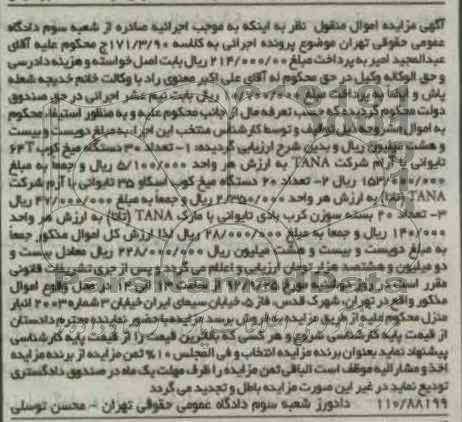 آگهی مزایده اموال منقول نظر به اینکه به موجب اجرائیه صادره از شعبه سوم دادگاه
عمومی حقوقی تهران موضوع پرونده اجرائی به کلاسه ۱۷۱/۳/۹۰ج محکوم علیه آقای
عبدالمجید امیر به پرداخت مبلغ ۲۱۴/۰۰۰/۰۰۰ ریال بابت اصل خواسته و هزینه دادرسی
و حق الوکاله وکیل در حق محکوم له آقای علی اکبر معنوی راد با وکالت خانم خدیجه شعله
پاش و ایضاً به پرداخت مبلغ ۱۰/۷۰۰/۰۰۰ ریال بابت نیم عشر اجرائی در حق صندوق
دولت محکوم گردیده که حسب تعرفه مال از جانب محکوم علیه و به منظور استیفاء محکوم
به اموال مشروحه ذیل توقیف و توسط کارشناس منتخب این اجراء به مبلغ دویست و بیست
و هشت میلیون ریال و بدین شرح ارزیابی گردیده: ۱- تعداد ۳۰ دستگاه میخ کوب ۶۴T
تایوانی با آرام شرکت TANA به ارزش هر واحد ۵/۱۰۰/۰۰۰ ریال و جمعاً به مبلغ
۱۵۳/۰۰۰/۰۰۰ ریال ۲- تعداد ۲۰ دستگاه میخ کوب اسکاو ۳۵ تایوانی با آرم شرکت
TANA (تانا) به ارزش هر واحد ۲/۳۵۰/۰۰۰ ریال و جمعاً به مبلغ ۴۷/۰۰۰/۰۰۰ ریال
۳- تعداد ۲۰ بسته سوزن کرب بادی تایوانی با مارک TANA (تانا) به ارزش هر واحد
۱۴۰/۰۰۰ ریال و جمعاً به مبلغ ۲۸/۰۰۰/۰۰۰ ریال لذا ارزش کل اموال مذکور جمعاً
به مبلغ دویست و بیست و هشت میلیون ریال ۲۲۸/۰۰۰/۰۰۰ ریال معادل بیست و
دو میلیون و هشتصد هزار تومان ارزیابی و اعلام می گردد و پس از جری تشریفات قانونی
مقرر است در روز دوشنبه مورخ ۹۲/۷/۲۵ از ساعت ۱۳ الی ۱۴ در محل وقوع اموال
مذکور واقع در تهران، شهرک قدس، فاز ۵، خیابان سیمای ایران خیابان ۳ شماره ۲۰۰۳ انبار
منزل محکوم علیه از طریق مزایده به فروش برسد مزایده با حضور نماینده محترم دادستان
از قیمت پایه کارشناسی شروع و هر کسی که بالاترین قیمت را از قیمت پایه کارشناسی
پیشنهاد نماید بعنوان برنده مزایده انتخاب و فی المجلس ۱۰% ثمن مزایده از برنده مزایده
اخذ و مشارالیه موظف است الباقی ثمن مزایده را ظرف مهلت یک ماه در صندوق دادگستری
تودیع نماید در غیر این صورت مزایده باطل و تجدید می گردد
۱۱۰/۸۸۱۹۹ دادورز شعبه سوم دادگاه عمومی حقوقی تهران - محسن توسلی